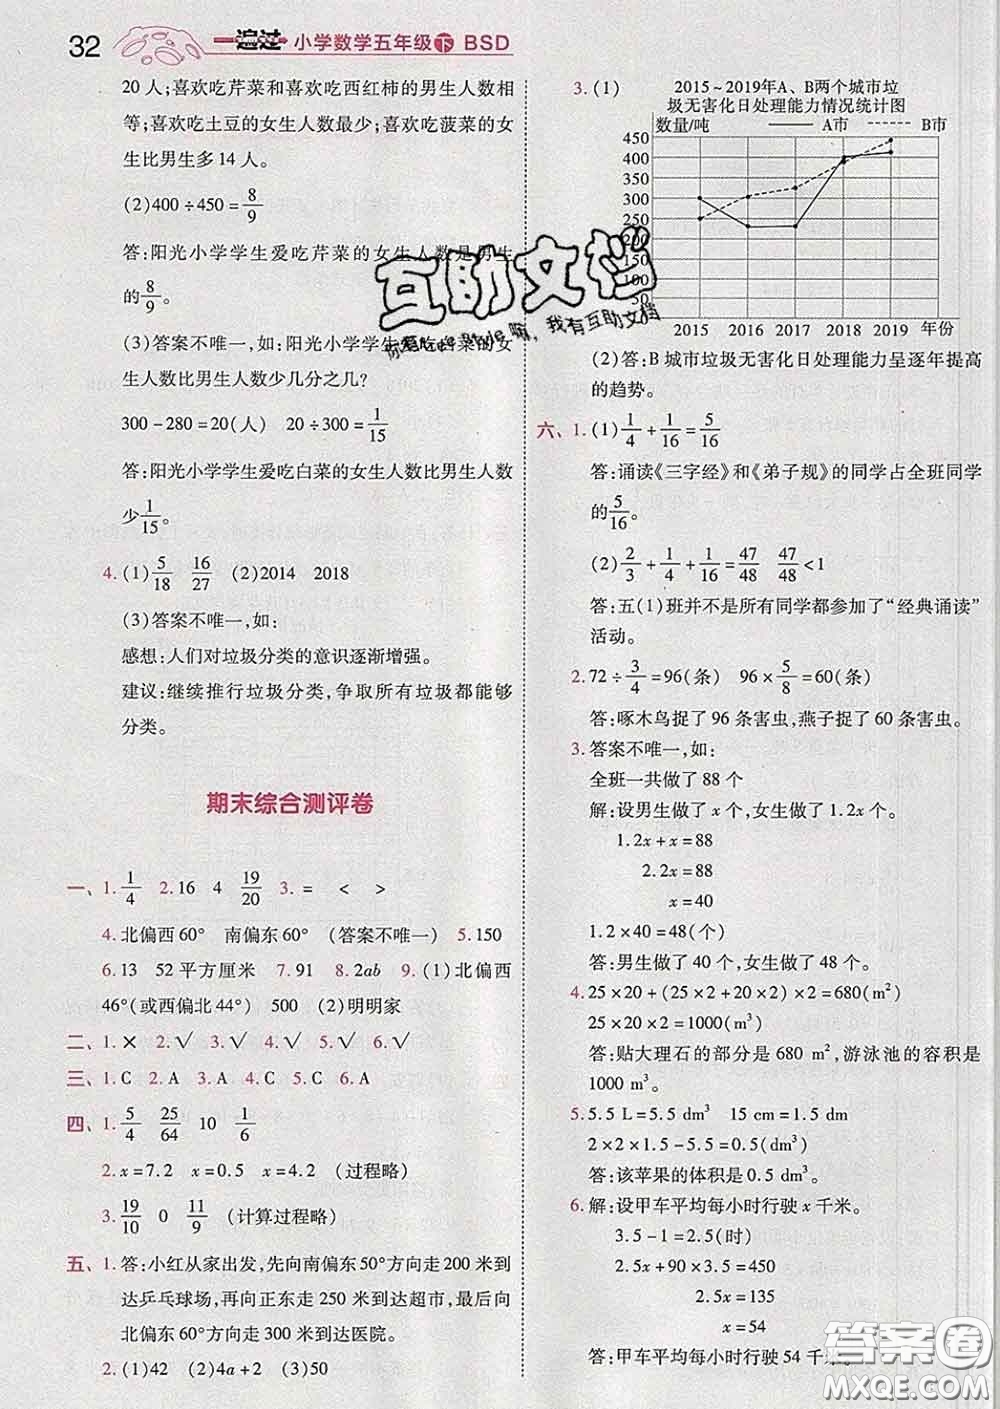 32 一遍过 小学数学五年级 下 BSD
20人;喜欢吃芹菜和喜欢吃西红柿的男生人数相
等;喜欢吃土豆的女生人数最少;喜欢吃菠菜的女
生比男生多14人。
(2)400÷450=8/9
答:阳光小学学生爱吃芹菜的女生人数是男生
的8/9。
(3)答案不唯一,如:阳光小学学生爱吃白菜的女
生人数比男生人数少几分之几?
300-280=20(人) 20÷300=1/15
答:阳光小学学生爱吃白菜的女生人数比男生人数
少1/15。
4.(1)5/18 16/27 (2)2014 2018
(3)答案不唯一,如:
感想:人们对垃圾分类的意识逐渐增强。
建议:继续推行垃圾分类,争取所有垃圾都能够
分类。
期末综合测评卷
一、1.1/4 2.16 4 19/20 3.= < >
4.北偏西60° 南偏东60° (答案不唯一) 5.150
6.13 52平方厘米 7.91 8.2ab 9.(1)北偏西
46°(或西偏北44°) 500 (2)明明家
二、1.× 2.√ 3.√ 4.√ 5.√ 6.√
三、1.C 2.A 3.A 4.C 5.C 6.A
四、1.5/4 25/64 10 1/6
2.x=7.2 x=0.5 x=4.2 (过程略)
3.19/10 0 11/9 (计算过程略)
五、1.答:小红从家出发,先向南偏东50°方向走200米到
达乒乓球场,再向正东走250米到达超市,最后向
北偏东60°方向走300米到达医院。
2.(1)42 (2)4a+2 (3)50
3.(1) 2015~2019年A、B两个城市垃
圾无害化日处理能力情况统计图
数量/吨 A市 B市
450
400
350
300
250
200
150
100
50
2015 2016 2017 2018 2019 年份
(2)答:B城市垃圾无害化日处理能力呈逐年提高
的趋势。
六、1.(1)1/4+1/16=5/16
答:诵读《三字经》和《弟子规》的同学占全班同学
的5/16。
(2)2/3+1/4+1/16=47/48 47/48<1
答:五(1)班并不是所有同学都参加了“经典诵读”
活动。
2.72÷3/4=96(条) 96×5/8=60(条)
答:啄木鸟捉了96条害虫,燕子捉了60条害虫。
3.答案不唯一,如:
全班一共做了88个
解:设男生做了x个,女生做了1.2x个。
1.2x+x=88
2.2x=88
x=40
1.2×40=48(个)
答:男生做了40个,女生做了48个。
4.25×20+(25×2+20×2)×2=680(m²)
25×20×2=1000(m³)
答:贴大理石的部分是680 m²,游泳池的容积是
1000 m³。
5.5.5 L=5.5 dm³ 15 cm=1.5 dm
2×2×1.5-5.5=0.5(dm³)
答:该苹果的体积是0.5 dm³。
6.解:设甲车平均每小时行驶x千米。
3.5-1=2.5(时)
2.5x+90×3.5=450
2.5x=135
x=54
答:甲车平均每小时行驶54千米。
互助文档
我有互助文档
答案圈
MXQE.COM